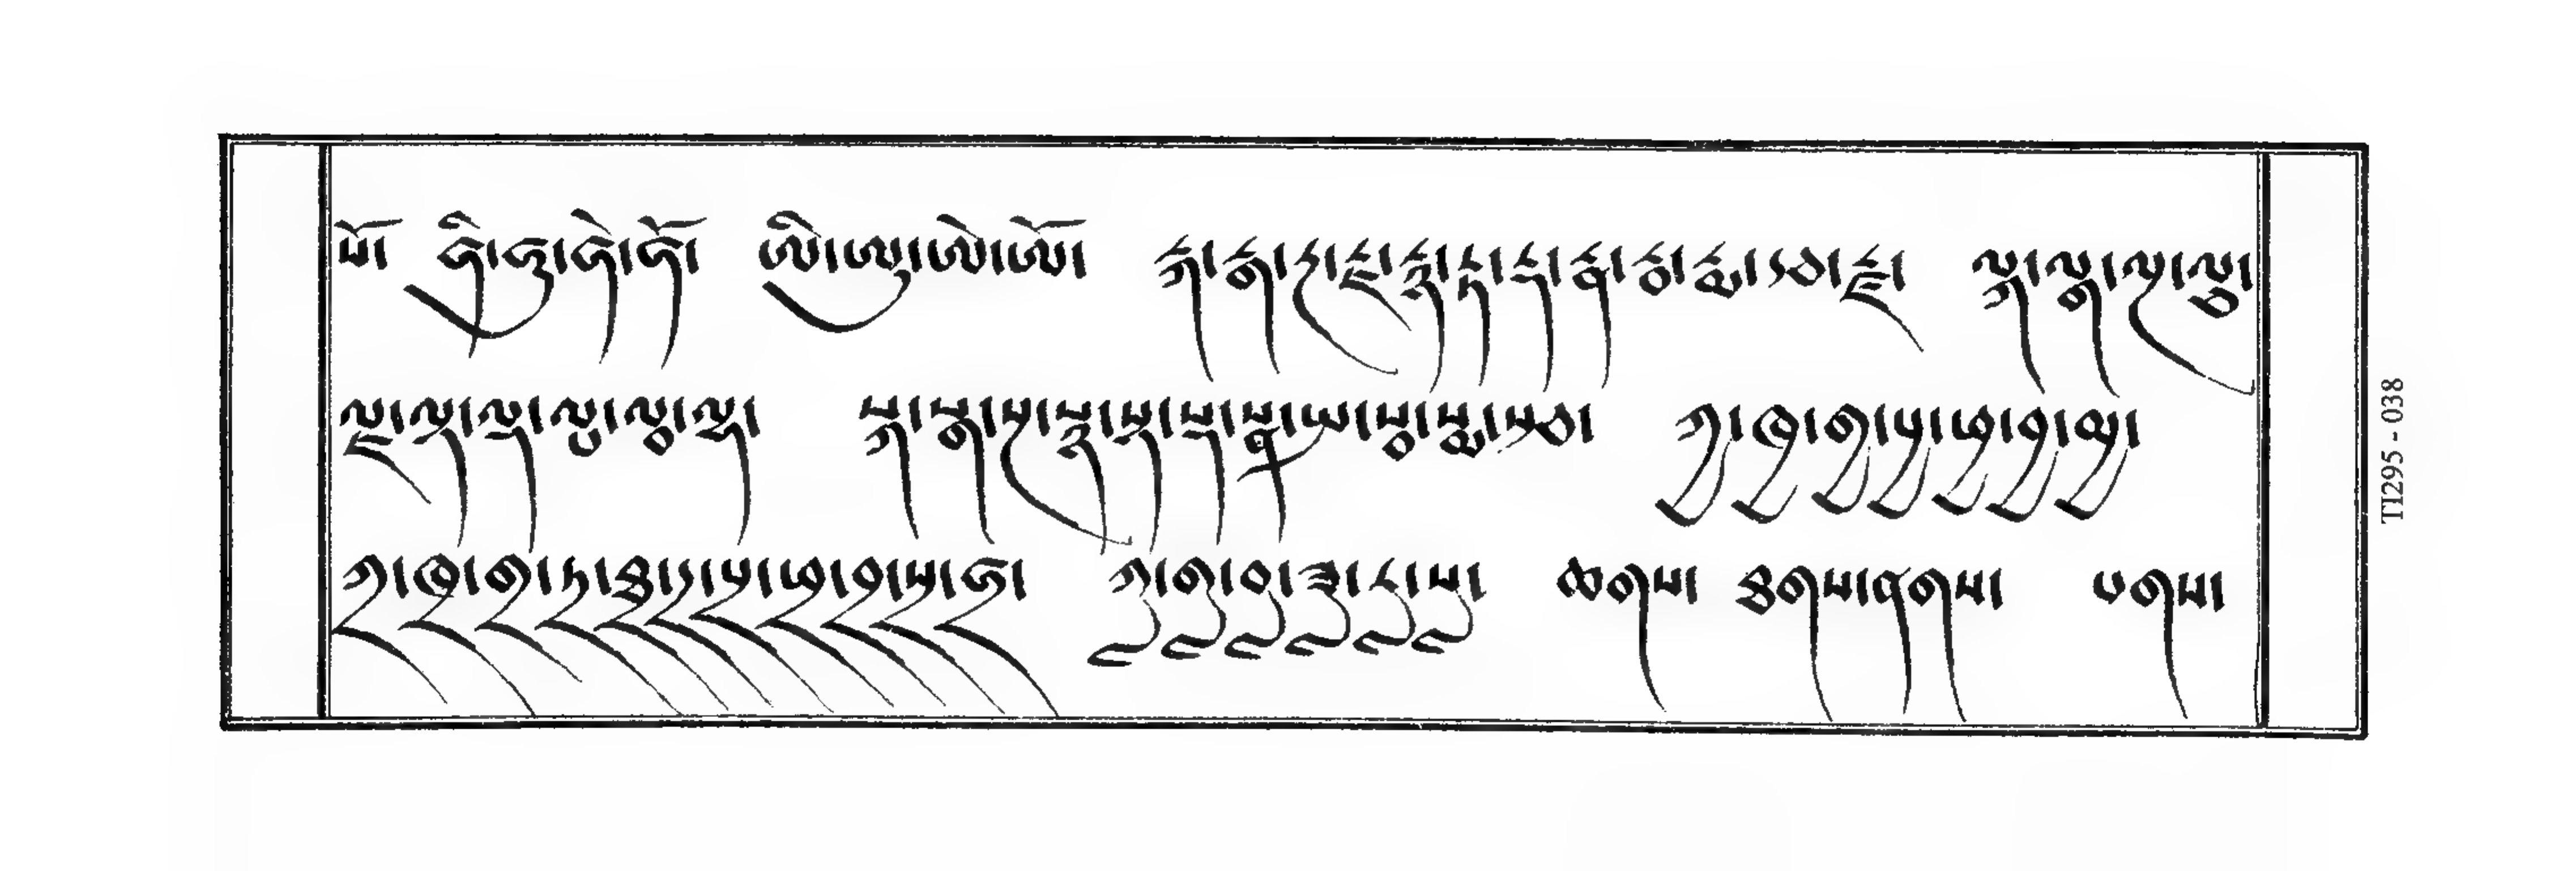 སོ། ཧི།ཧུ།ཧེ།ཧོ། ཨི།ཨུ།ཨེ།ཨོ། རྐ།རྒ།རྔ།རྗ།རྙ།རྟ།རྡ།རྣ།རྦ།རྨ།རྩ།རྫ། ལྐ།ལྒ།ལྔ།ལྕ།
ལྗ།ལྟ།ལྡ།ལྤ།ལྦ།ལྷ། སྐ།སྒ།སྔ།སྙ།སྟ།སྡ།སྣ།སྤ།སྦ།སྨ།སྩ། ཀྱ།ཁྱ།གྱ།པྱ།ཕྱ།བྱ།མྱ།
ཀྲ།ཁྲ།གྲ།ཏྲ།ཐྲ།དྲ།པྲ།ཕྲ།བྲ།སྲ།ཧྲ། ཀླ།གླ།བླ།ཟླ།རླ།སླ། ཆགས། ཐགས།ནགས། པགས།
TI295 - 038